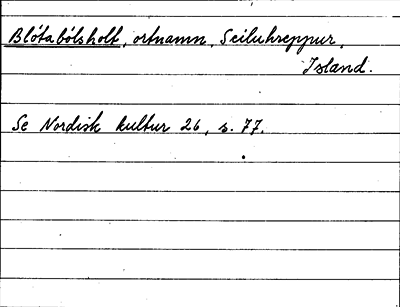 Blótabólsholt, ortnamn, Seiluhreppur,
Island.
Se Nordisk kultur 26, s. 77.